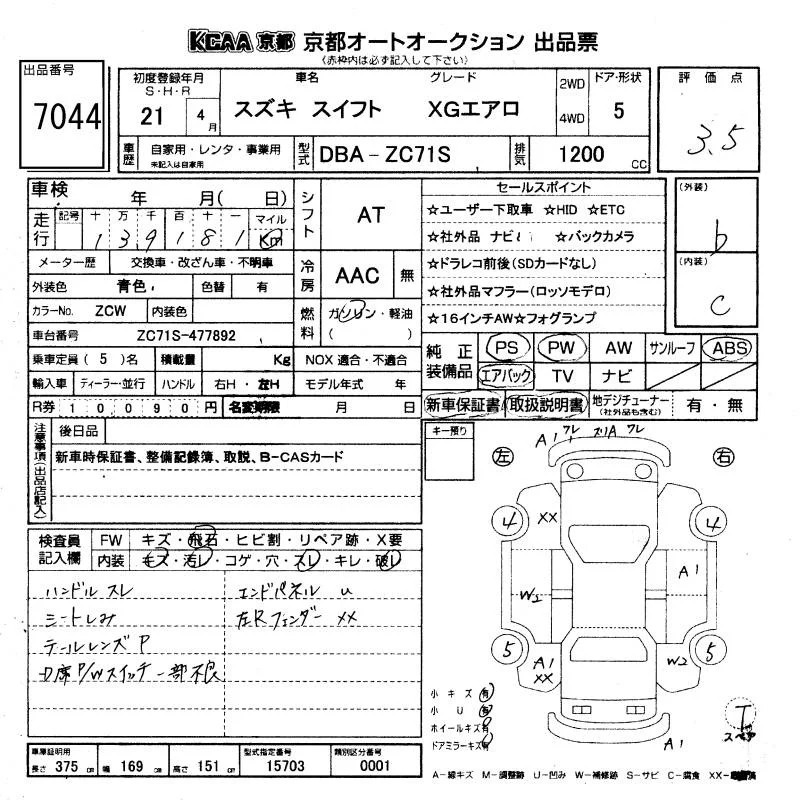 KCAA 京都 京都オートオークション 出品票
(赤枠内は必ず記入して下さい)
出品番号
7044
初度登録年月
S・H・R
21 4月
車名
スズキ スイフト
グレード
XGエアロ
2WD
4WD
ドア・形状
5
評価点
3.5
車歴
自家用・レンタ・事業用
未記入は自家用
型式
DBA－ZC71S
排気
1200 CC
車検 年 月( 日)
走行 記号 十 万 千 百 十 一 マイル
1 3 9 1 8 1 Km
メーター歴 交換車・改ざん車・不明車
外装色 青色 色替 有
カラーNo. ZCW 内装色
車台番号 ZC71S-477892
乗車定員 ( 5 ) 名 積載量 Kg
輸入車 ディーラー・並行 ハンドル 右H・左H
R券 10090円 名変期限 月 日
シフト AT
冷房 AAC 無
燃料 ガソリン・軽油
( )
NOX 適合・不適合
モデル年式 年
セールスポイント
☆ユーザー下取車 ☆HID ☆ETC
☆社外品 ナビ ☆バックカメラ
☆ドラレコ前後(SDカードなし)
☆社外品マフラー(ロッソモデロ)
☆16インチAW☆フォグランプ
(外装)
b
(内装)
C
純正装備品
PS PW AW サンルーフ ABS
エアバック TV ナビ
新車保証書 取扱説明書 地デジチューナー (社外品も含む) 有・無
注意事項(出品店記入)
後日品
新車時保証書、整備記録簿、取説、B-CASカード
キー預り
検査員記入欄
FW キズ・飛石・ヒビ割・リペア跡・X要
内装 モズ・汚レ・コゲ・穴・スレ・キレ・破レ
ハンドル スレ
シートしみ
テールレンズ P
D席P/Wスイッチ一部不良
エンドパネル u
左Rフェンダー XX
左 右
A1 ワレ ズリA ワレ
4 XX 4
A1
W2
5 A1 XX W2 5
A1
小キズ 有
小U 有
ホイールキズ 有
ドアミラーキズ 有
T
スペア
車庫証明用
長さ 375 cm 幅 169 cm 高さ 151 cm
型式指定番号
15703
類別区分番号
0001
A－線キズ M－調整跡 U－凹み W－補修跡 S－サビ C－腐食 XX－